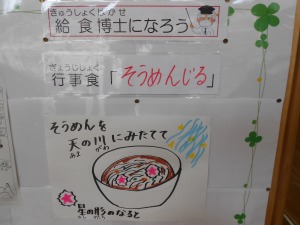 きゅうしょくはかせ
給食博士になろう
ぎょうじしょく
行事食「そうめんじる」
そうめんを
天の川にみたてて
あま がわ
星の形のなると
ほし かたち